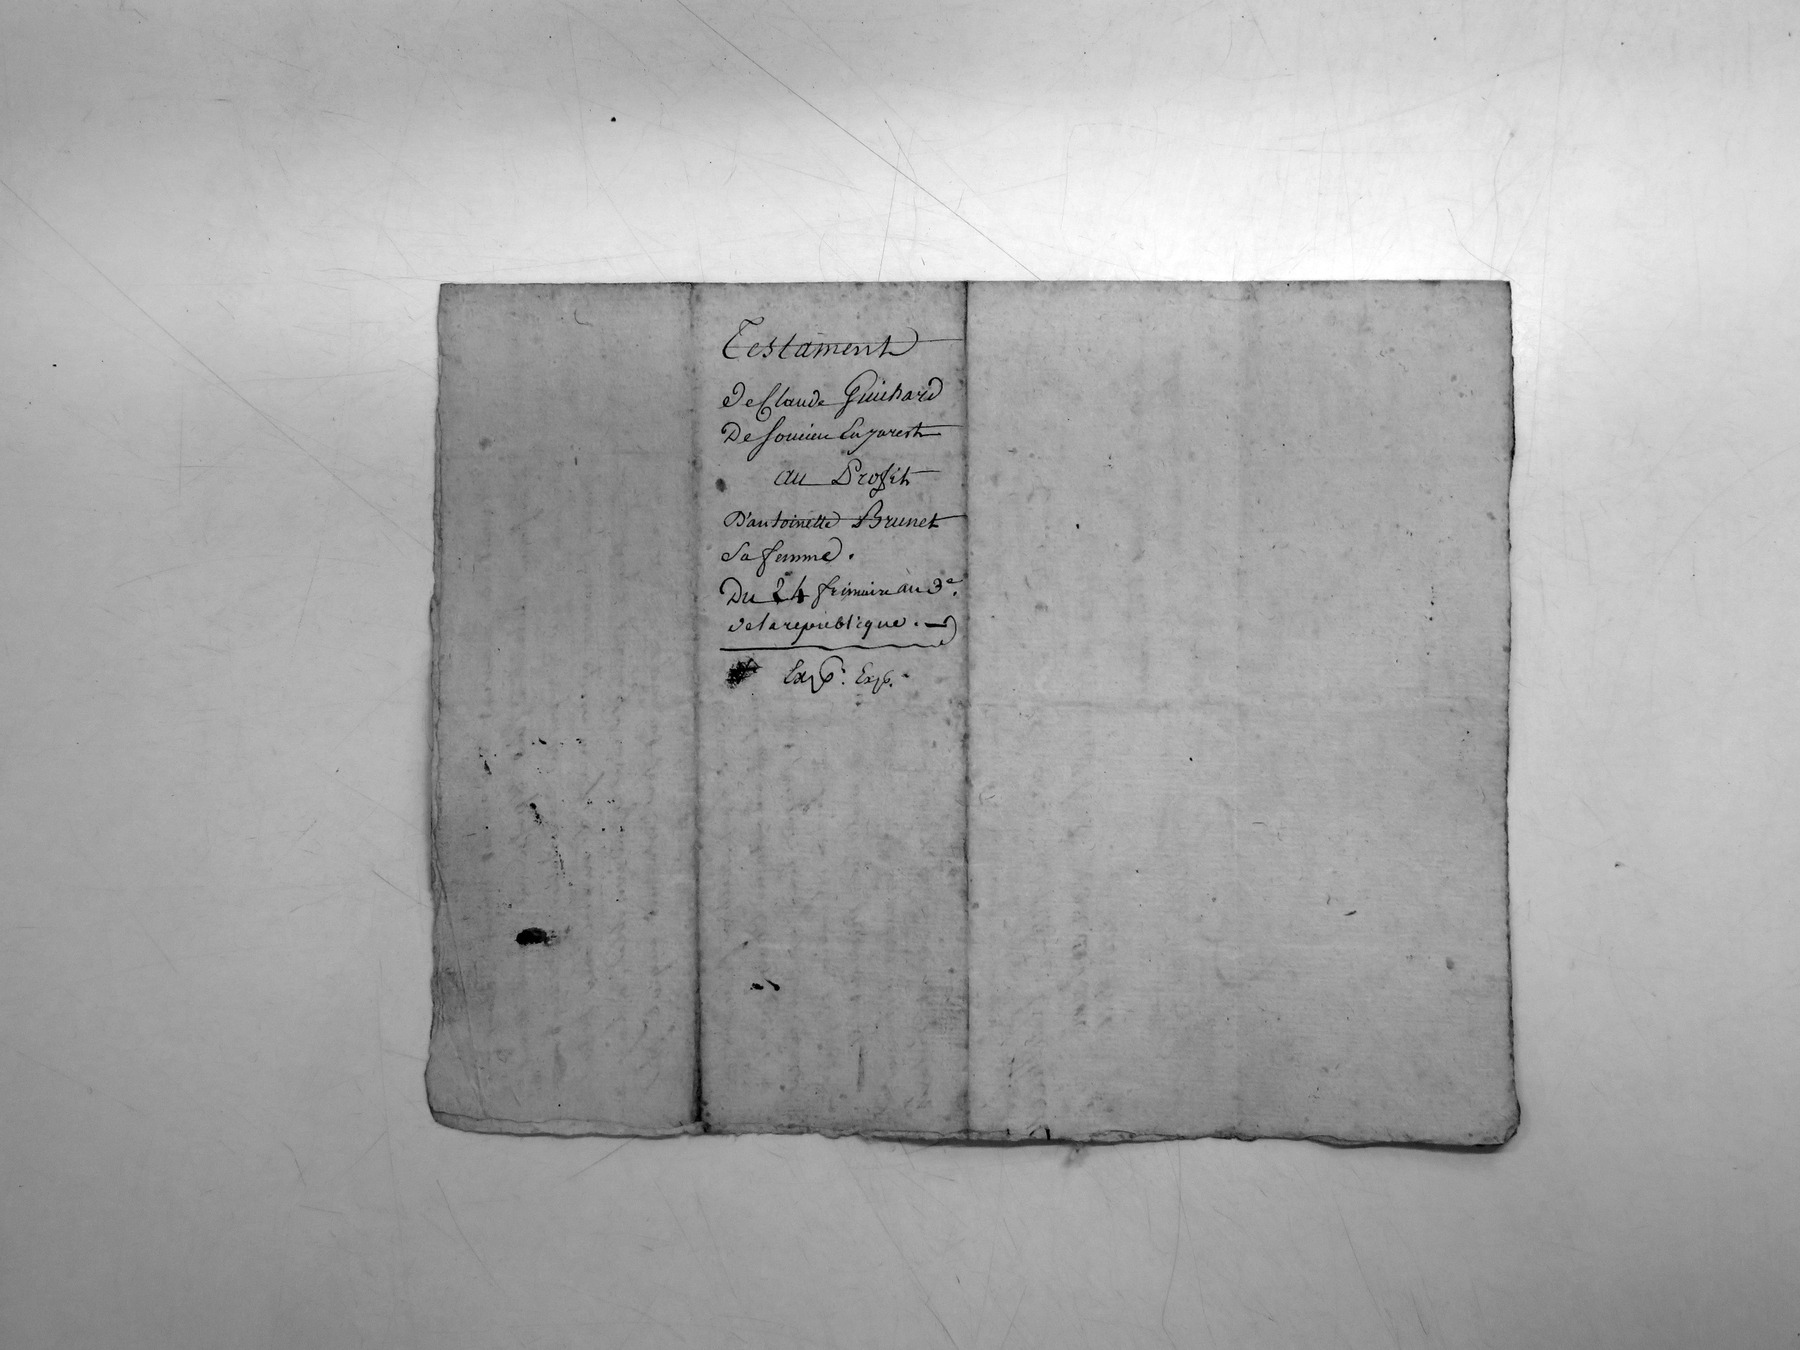 Testament
de Claude Guichard
De Soucieu En Jarest
au Profit
D'antoinette Brunet
Sa femme.
Du 24 frimaire an 3e.
de la republique.
Exp. Exp.